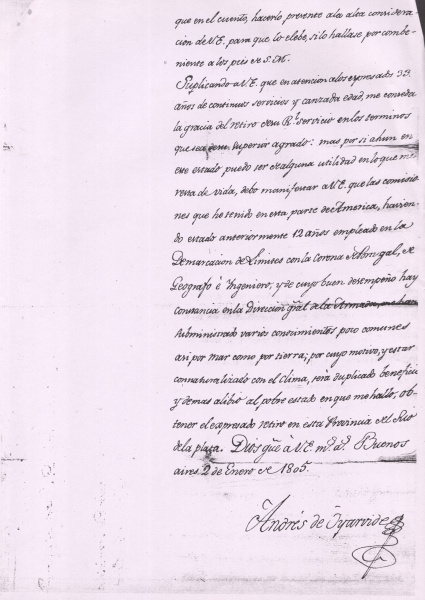 que en el cuento, hacerlo presente a la alta considera-
cion de V.E. para que lo elebe, si lo hallase por combe-
niente a los pies de S.M.
Suplicando a V.E. que en atencion a los expresados 39
años de continuos servicios y canzada edad, me conceda
la gracia del retiro de su Rl. servicio en los terminos
que sea de su superior agrado: mas por si aun en
este estado puedo ser de alguna utilidad en lo que me
resta de vida, debo manifestar a V.E. que las comisio-
nes que he tenido en esta parte de America, havien-
do estado anteriormente 12 años empleado en la
Demarcacion de Limites con la Corona de Portugal, de
Geografo è Ingeniero, y de cuyo buen desempeño hay
constancia en la Direccion gral de la Armada, me han
subministrado varios conocimientos poco comunes
asi por mar como por tierra; por cuyo motivo, y estar
connaturalizado con el clima, será duplicado beneficio
y demas alibio al pobre estado en que me hallo, ob-
tener el expresado retiro en esta Provincia del Rio
de la plata. Dios gûe à V.E. ms. as. Buenos
aires 2 de Enero de 1805.
Andrés de Oyarvide